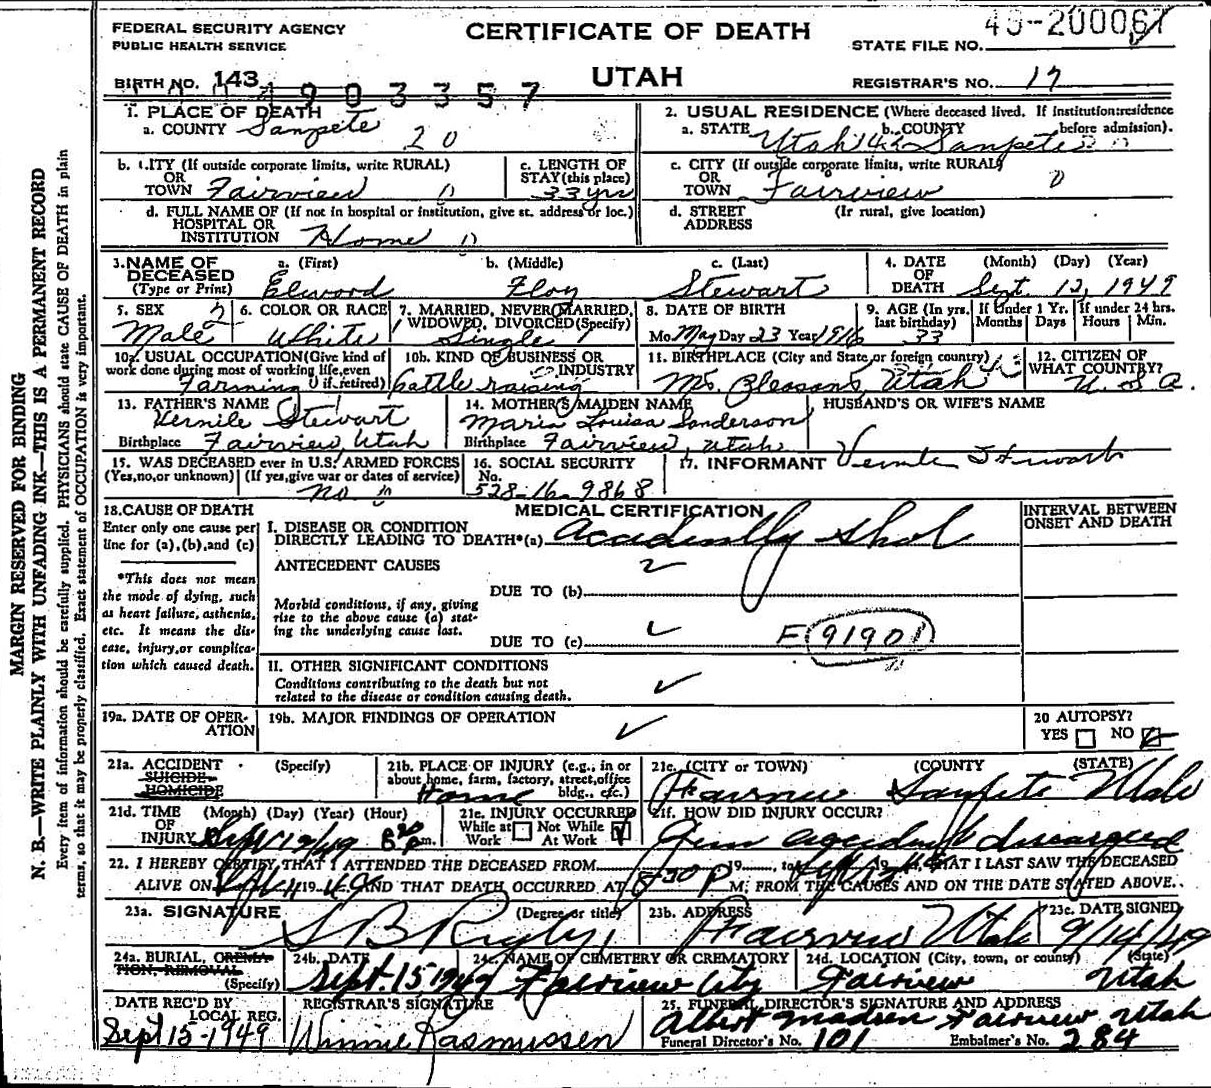 FEDERAL SECURITY AGENCY
PUBLIC HEALTH SERVICE
CERTIFICATE OF DEATH
UTAH
STATE FILE NO.
BIRTH NO. 143
4903357
REGISTRAR'S NO. 17
1. PLACE OF DEATH
a. COUNTY Sanpete 20
2. USUAL RESIDENCE (Where deceased lived. If institution:residence before admission).
a. STATE Utah 42 b. COUNTY Sanpete
b. CITY (If outside corporate limits, write RURAL)
OR
TOWN Fairview 0
c. LENGTH OF
STAY (this place)
33 yrs
c. CITY (If outside corporate limits, write RURAL)
OR
TOWN Fairview 0
d. FULL NAME OF (If not in hospital or institution, give st. address or loc.)
HOSPITAL OR
INSTITUTION Home 0
d. STREET (If rural, give location)
ADDRESS
3. NAME OF DECEASED
(Type or Print)
a. (First) b. (Middle) c. (Last)
Elwood Floy Stewart
4. DATE OF DEATH (Month) (Day) (Year)
Sept. 12, 1949
5. SEX
Male
6. COLOR OR RACE
White
7. MARRIED, NEVER MARRIED,
WIDOWED, DIVORCED (Specify)
Single
8. DATE OF BIRTH
Mo. May Day 23 Year 1916
9. AGE (In yrs. last birthday)
33
If Under 1 Yr.
Months Days
If under 24 hrs.
Hours Min.
10a. USUAL OCCUPATION (Give kind of
work done during most of working life, even
if retired)
Farming
10b. KIND OF BUSINESS OR
INDUSTRY
Cattle raising
11. BIRTHPLACE (City and State or foreign country)
Mt. Pleasant, Utah
12. CITIZEN OF
WHAT COUNTRY?
U.S.A.
13. FATHER'S NAME
Vernile Stewart
Birthplace Fairview, Utah
14. MOTHER'S MAIDEN NAME
Maria Louisa Sanderson
Birthplace Fairview, Utah
HUSBAND'S OR WIFE'S NAME
15. WAS DECEASED ever in U.S. ARMED FORCES
(Yes, no, or unknown) (If yes, give war or dates of service)
No
16. SOCIAL SECURITY
No.
528-16-9868
17. INFORMANT Vernile Stewart
18. CAUSE OF DEATH
Enter only one cause per
line for (a), (b), and (c)
*This does not mean
the mode of dying, such
as heart failure, asthenia,
etc. It means the dis-
ease, injury, or complica-
tion which caused death.
MEDICAL CERTIFICATION
INTERVAL BETWEEN
ONSET AND DEATH
I. DISEASE OR CONDITION
DIRECTLY LEADING TO DEATH*(a) Accidently shot
ANTECEDENT CAUSES
DUE TO (b)
Morbid conditions, if any, giving
rise to the above cause (a) stat-
ing the underlying cause last.
DUE TO (c)
E 9190
II. OTHER SIGNIFICANT CONDITIONS
Conditions contributing to the death but not
related to the disease or condition causing death.
19a. DATE OF OPER-
ATION
19b. MAJOR FINDINGS OF OPERATION
20 AUTOPSY?
YES NO
21a. ACCIDENT (Specify)
SUICIDE
HOMICIDE
21b. PLACE OF INJURY (e.g., in or
about home, farm, factory, street, office
bldg., etc.)
Home
21c. (CITY OR TOWN) (COUNTY) (STATE)
Fairview Sanpete Utah
21d. TIME (Month) (Day) (Year) (Hour)
OF
INJURY Sept 12/49 8 30 m.
21e. INJURY OCCURRED
While at Work Not While At Work
21f. HOW DID INJURY OCCUR?
Gun accidently discharged
22. I HEREBY CERTIFY THAT I ATTENDED THE DECEASED FROM 19 , to Sept 12 19 49 THAT I LAST SAW THE DECEASED
ALIVE ON Sept 11 19 49 AND THAT DEATH OCCURRED AT 8 30 P M, FROM THE CAUSES AND ON THE DATE STATED ABOVE.
23a. SIGNATURE (Degree or title)
S B Rigby,
23b. ADDRESS
Fairview Utah
23c. DATE SIGNED
9/14/49
24a. BURIAL, CREMA-
TION, REMOVAL
(Specify)
24b. DATE
Sept. 15 1949
24c. NAME OF CEMETERY OR CREMATORY
Fairview City
24d. LOCATION (City, town, or county) (State)
Fairview Utah
DATE REC'D BY
LOCAL REG.
Sept 15-1949
REGISTRAR'S SIGNATURE
Winnie Rasmussen
25. FUNERAL DIRECTOR'S SIGNATURE AND ADDRESS
Albert Madsen Fairview Utah
Funeral Director's No. 101 Embalmer's No. 284
MARGIN RESERVED FOR BINDING
N. B.—WRITE PLAINLY WITH UNFADING INK—THIS IS A PERMANENT RECORD
Every item of information should be carefully supplied. PHYSICIANS should state CAUSE OF DEATH in plain
terms, so that it may be properly classified. Exact statement of OCCUPATION is very important.